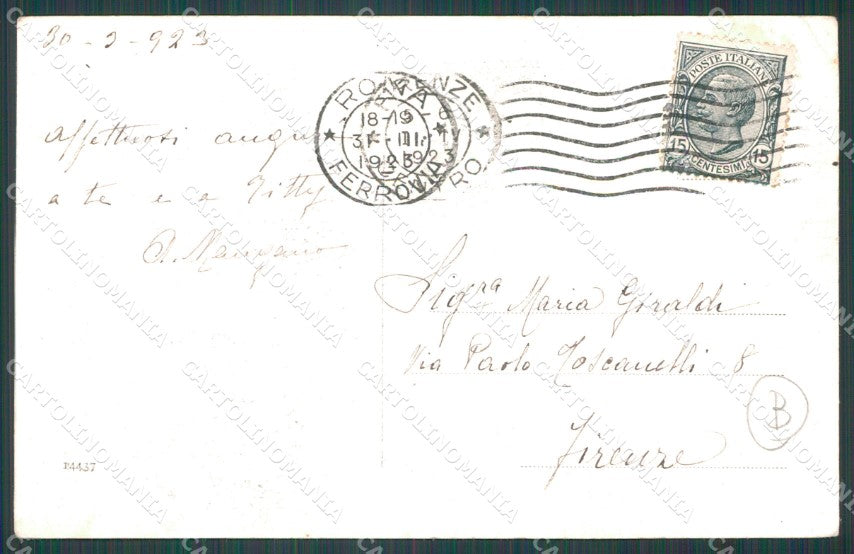 30-3-923
Affettuosi auguri
a te e a Titty
A. Manzano
ROMA
18-19
31·III·
1923
FERROVIA
FIRENZE
1923
POSTE ITALIANE
15 CENTESIMI 15
Sig.ra Maria Giraldi
Via Paolo Toscanelli 8
Firenze
B
P4437
CARTOLINOMANIA